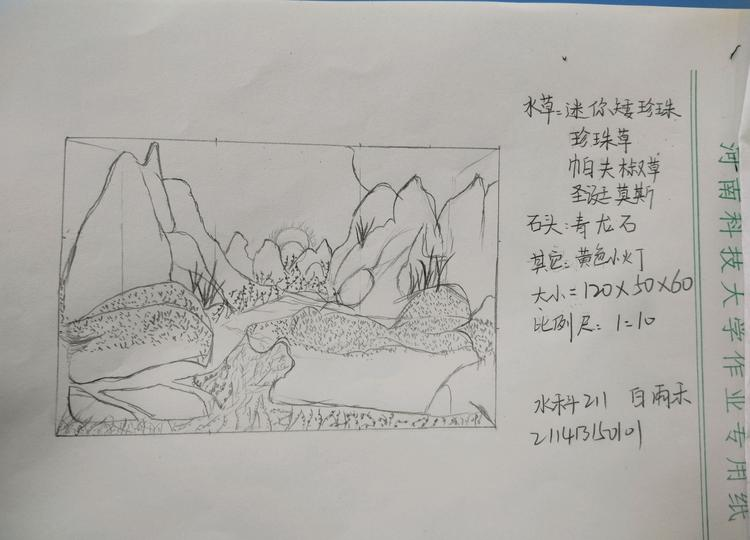 水草:迷你矮珍珠
珍珠草
帕夫椒草
圣诞莫斯
石头:青龙石
其它:黄色小灯
大小=120×50×60
比例尺:1=10
水科211 白雨禾
211413150101
河南科技大学作业专用纸